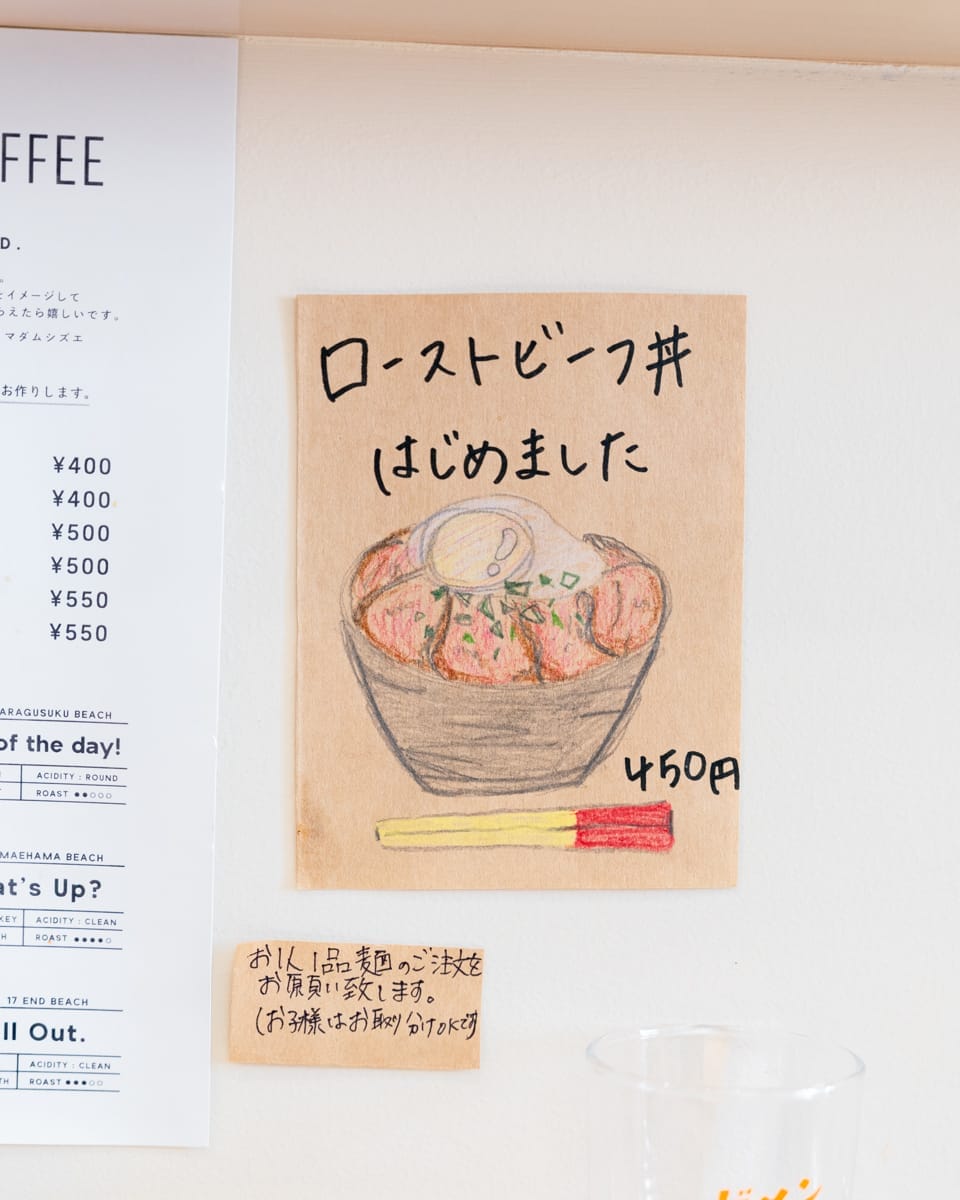 FFEE
D.
。
とイメージして
らえたら嬉しいです。
マダムシズエ
お作りします。
¥400
¥400
¥500
¥500
¥550
¥550
ARAGUSUKU BEACH
of the day!
ACIDITY : ROUND
ROAST ●●○○○
MAEHAMA BEACH
at's Up?
KEY ACIDITY : CLEAN
H ROAST ●●●●○
17 END BEACH
ll Out.
ACIDITY : CLEAN
TH ROAST ●●●○○
ローストビーフ丼
はじめました
450円
お1人1品麺のご注文を
お願い致します。
(お子様はお取り分けOKです